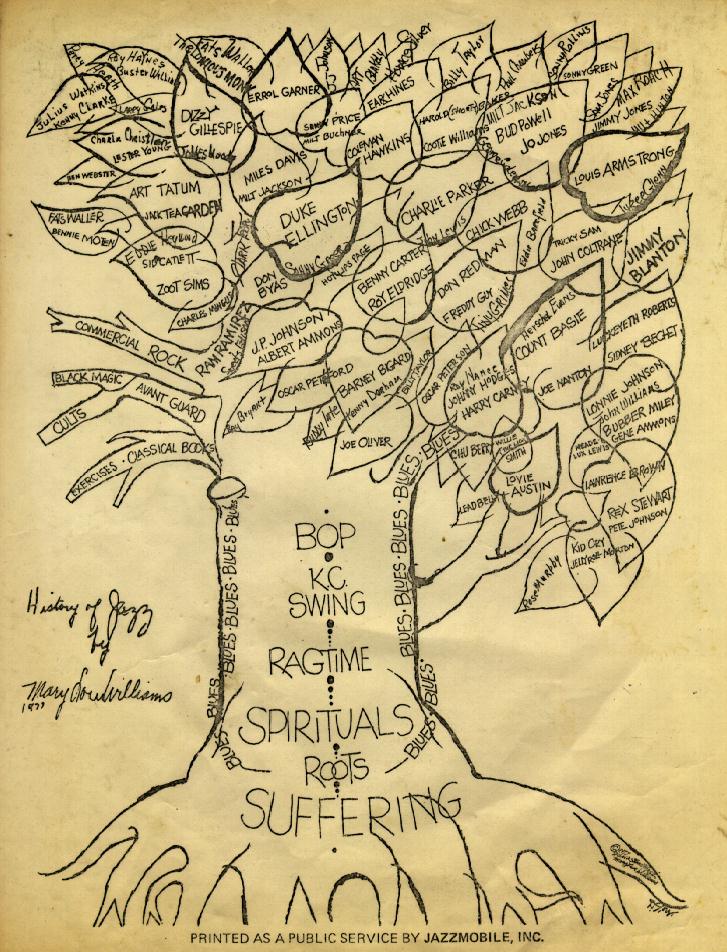 Petty
Roy Haynes
Buster Williams
Fats Waller
THELONIOUS MONK
ERROL GARNER
Johnson
Horace Silver
EARL HINES
Billy Taylor
Paul Chambers
Sonny Rollins
SONNY GREEN
Sam Jones
MAX ROACH
JIMMY JONES
Julius Watkins
Kenny Clarke
DIZZY
GILLESPIE
James Moody
SAMMY PRICE
MILT BUCKNER
COLEMAN
HAWKINS
HAROLD (SHORTY) BAKER
Cootie Williams
MILT JACKSON
BUD POWELL
JO JONES
LOUIS ARMSTRONG
Charlie Christian
LESTER YOUNG
BEN WEBSTER
ART TATUM
JACK TEAGARDEN
MILES DAVIS
MILT JACKSON
DUKE
ELLINGTON
CHARLIE PARKER
CHICK WEBB
Eddie Barefield
TRICKY SAM
JOHN COLTRANE
JIMMY
BLANTON
FATS WALLER
BENNIE MOTEN
SID CATLETT
ZOOT SIMS
CHARLES MINGUS
DON
BYAS
HOT LIPS PAGE
BENNY CARTER
ROY ELDRIDGE
DON REDMAN
FREDDY GUY
Herschel Evans
COUNT BASIE
LUCKEYETH ROBERTS
SIDNEY BECHET
COMMERCIAL ROCK
RAM RAMIREZ
J.P. JOHNSON
ALBERT AMMONS
OSCAR PETTIFORD
BARNEY BIGARD
Kenny Dorham
BILLY TAYLOR
OSCAR PETERSON
Ray Nance
JOHNNY HODGES
HARRY CARNEY
JOE NANTON
LONNIE JOHNSON
John Williams
BUBBER MILEY
GENE AMMONS
BLACK MAGIC
AVANT GUARD
CULTS
EXERCISES · CLASSICAL BOOKS
Ray Bryant
JOE OLIVER
CHU BERRY
WILLIE
SMITH
LOVIE
AUSTIN
LEADBELLY
MEADE
LUX LEWIS
LAWRENCE BROWN
REX STEWART
PETE JOHNSON
KID ORY
JELLY ROLL MORTON
Rose Murphy
BLUES · BLUES · BLUES · BLUES
BLUES · BLUES · BLUES · BLUES
BOP
K.C.
SWING
RAGTIME
SPIRITUALS
ROOTS
SUFFERING
BLUES
BLUES
BLUES
BLUES
History of Jazz
by
Mary Lou Williams
PRINTED AS A PUBLIC SERVICE BY JAZZMOBILE, INC.